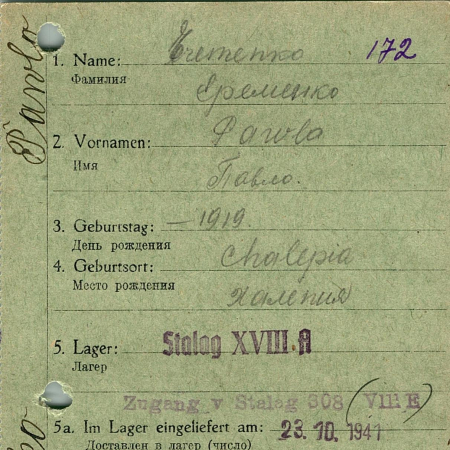 Pawlo
1. Name: Eremenko 172
Фамилия Еременко
2. Vornamen: Pawlo
Имя Павло.
3. Geburtstag: — 1919.
День рождения
4. Geburtsort: Chalepia
Место рождения Халепия
5. Lager: Stalag XVIII A
Лагер
Zugang v Stalag 308 (VIII E)
5a. Im Lager eingeliefert am: 23. 10. 1941
Доставлен в лагер (число)